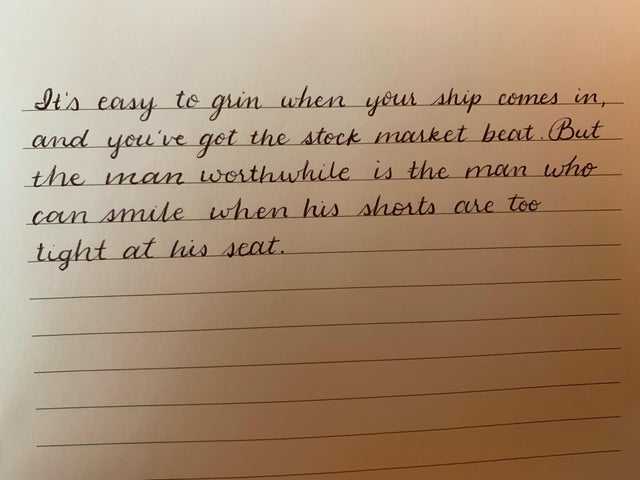 It's easy to grin when your ship comes in,
and you've got the stock market beat. But
the man worthwhile is the man who
can smile when his shorts are too
tight at his seat.